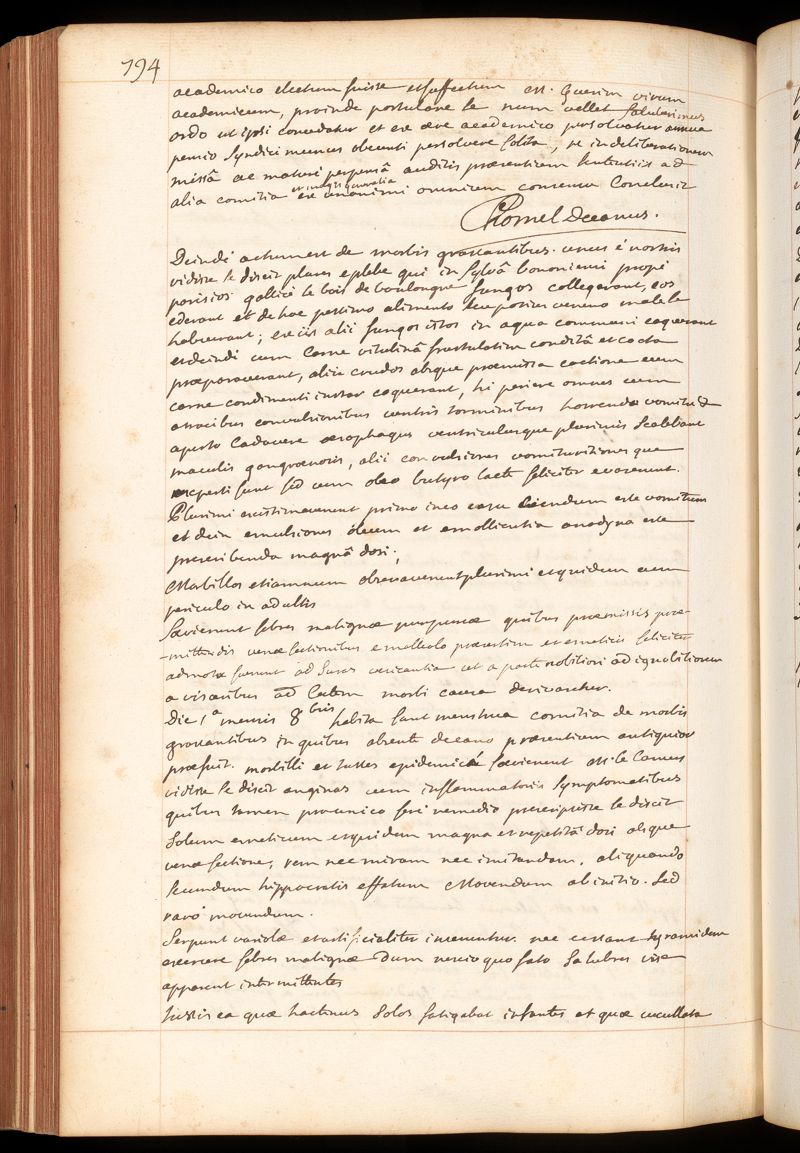 794
academico electum fuisse et suffectum est. quærim virum
academicum, proinde postulare se num vellet saluberrimus
ordo ut ipsi concedatur et ex ære academico persolvatur annua
pensio syndici munus obeunti persolvere solita, re in deliberationem
missâ ac maturè perpensâ auditis præsentium sententiis ad
alia comitia et magis generalia ex unanimi omnium consensu conclusit
Chomel Decanus.
Deindè actum est de morbis grassantibus. unus è nostris
vidisse se dixit plures e plebe qui in sylvâ bononiensi propè
parisios gallicè le bois de boulongne fungos collegerant, eos
ederant et de hoc pessimo alimento seu potius veneno male se
habuerant; ex iis alii fungos istos in aqua communi coquerant
et deindè cum carne vitulinâ frustulatim conditâ et cocta
præparaverant, alii crudos absque præmissa coctione cum
carne condimenti instar coquerant, hi periere omnes cum
atrocibus convulsionibus ventris torminibus horrendo vomitu &
aperto cadavere œsophagus ventriculusque plurimis scatebant
maculis gangrœnosis, alii convulsiones vomituritionesque
experti sunt sed cum oleo butyro lacte feliciter evaserunt.
Plurimi existimaverunt primo in eo casu ciendum esse vomitum
et dein emulsiones oleum et emollientia anodyna esse
præscribenda magnâ dosi.
Morbillos etiamnum observaverunt plurimi et quidem cum
periculo in adultis
Sævierunt febres malignæ purpureæ quibus præmissis præ-
-mittendis venæ sectionibus e malleolo præsertim et emeticis feliciter
admota fuerunt ad suras vesicantia ut a parte nobiliori ad ignobiliorem
a visceribus ad cutem morbi causa derivaretur.
Die 1ª mensis 8bris habita sunt menstrua comitia de morbis
grassantibus in quibus absente decano præsentium antiquior
præfuit. morbilli et tusses epidemicè sævierunt Mr. le Camus
vidisse se dixit anginas cum inflammatoriis symptomatibus
quibus tamen pro unico ferè remedio præscripsisse se dixit
solum emeticum et quidem magna et repetitâ dosi absque
venæ sectione, rem nec miram nec imitandam. aliquando
secundum hippocratis effatum movendum ab initio. sed
rarò movendum.
Serpunt variolæ et artificialiter inseruntur. nec cessant tyrannidem
exercere febres malignæ dum nescio quo fato salubres visæ
apparent intermittentes
tussis ea quæ hactenus solos fatigabat infantes et quæ cucullata